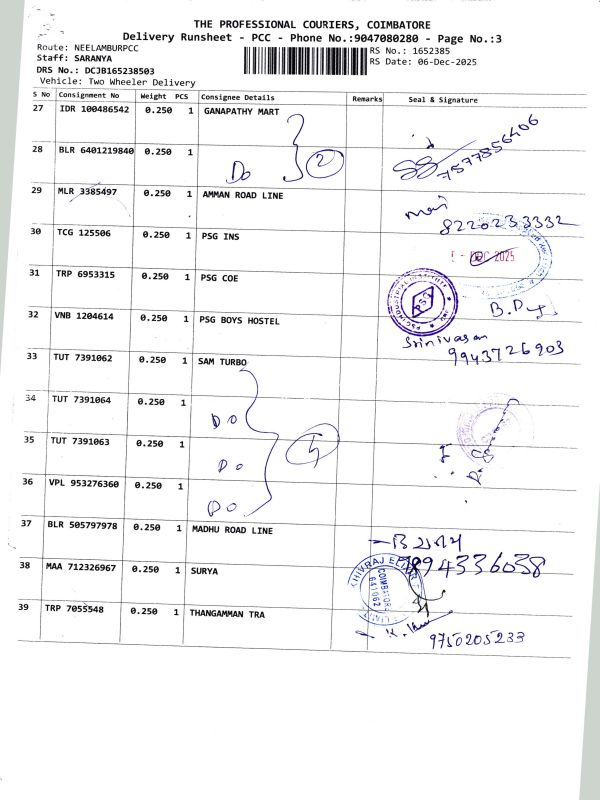 THE PROFESSIONAL COURIERS, COIMBATORE
Delivery Runsheet - PCC - Phone No.:9047080280 - Page No.:3
Route: NEELAMBURPCC
RS No.: 1652385
Staff: SARANYA
RS Date: 06-Dec-2025
DRS No.: DCJB165238503
Vehicle: Two Wheeler Delivery
S No Consignment No Weight PCS Consignee Details Remarks Seal & Signature
27 IDR 100486542 0.250 1 GANAPATHY MART
28 BLR 6401219840 0.250 1 Do 2 7577856406
29 MLR 3385497 0.250 1 AMMAN ROAD LINE
8220233332
30 TCG 125506 0.250 1 PSG INS DEC 2025
31 TRP 6953315 0.250 1 PSG COE PSG
32 VNB 1204614 0.250 1 PSG BOYS HOSTEL
Srinivasan
9943726903
33 TUT 7391062 0.250 1 SAM TURBO
34 TUT 7391064 0.250 1 Do
35 TUT 7391063 0.250 1 Do
36 VPL 953276360 0.250 1 Do
37 BLR 505797978 0.250 1 MADHU ROAD LINE
38 MAA 712326967 0.250 1 SURYA 9894336038
COIMBATORE
641062
39 TRP 7055548 0.250 1 THANGAMMAN TRA
9750205233